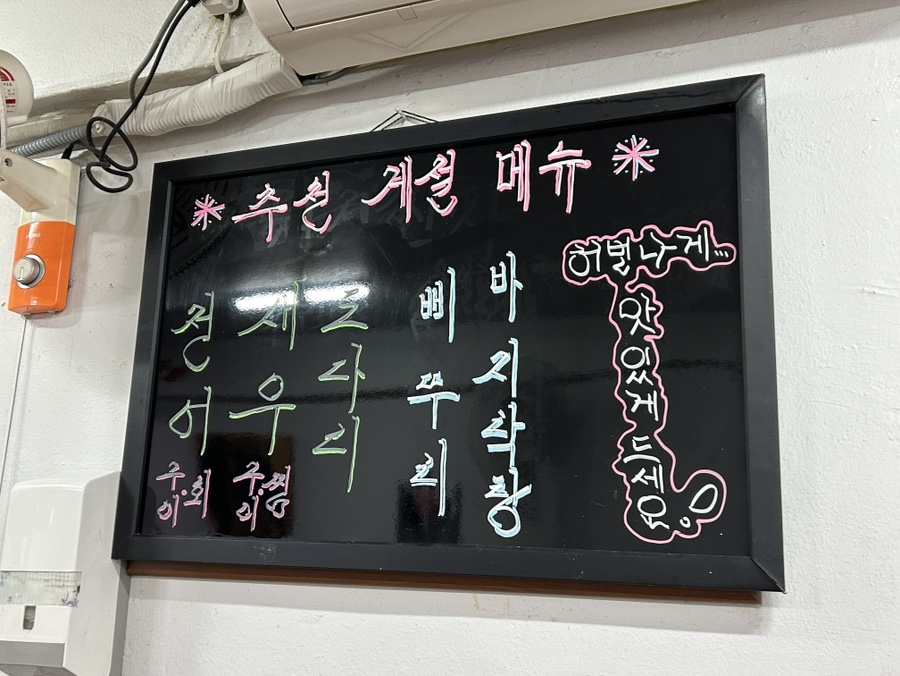 * 추천 계절 메뉴 *
전어
구이·회
새우
구이·찜
도다리
삐뚜리
바지락탕
허벌나게
맛있게 드세요